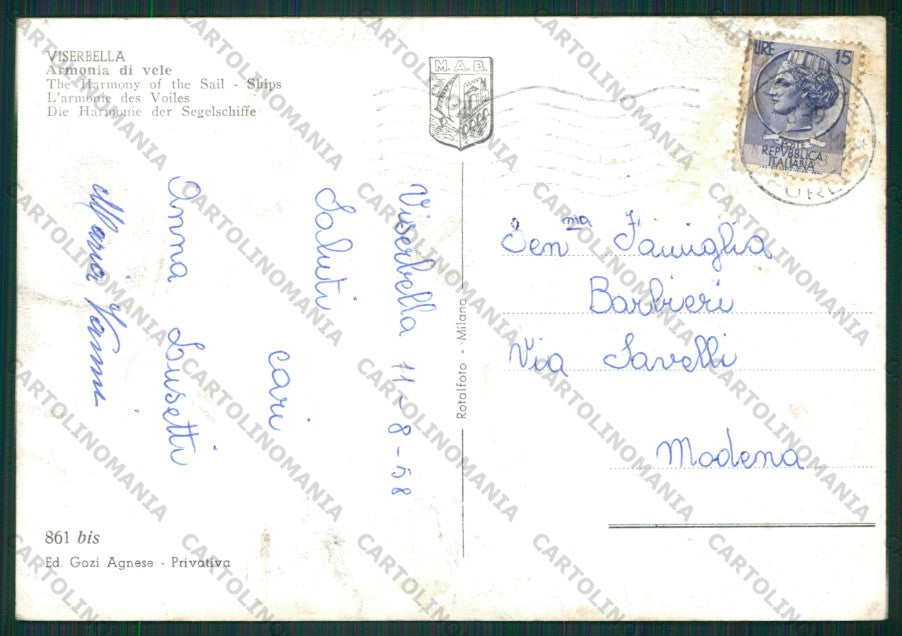 VISERBELLA
Armonia di vele
The Harmony of the Sail - Ships
L'armonie des Voiles
Die Harmonie der Segelschiffe
M. A. B.
LIRE 15
POSTE
REPVBBLICA
ITALIANA
Viserbella 11-8-58
Saluti
cari
Anna Lusetti
Maria Vanni
Gen.ma Famiglia
Barbieri
Via Savelli
Modena
Rotalfoto - Milano
861 bis
Ed. Gozi Agnese - Privativa
CARTOLINOMANIA